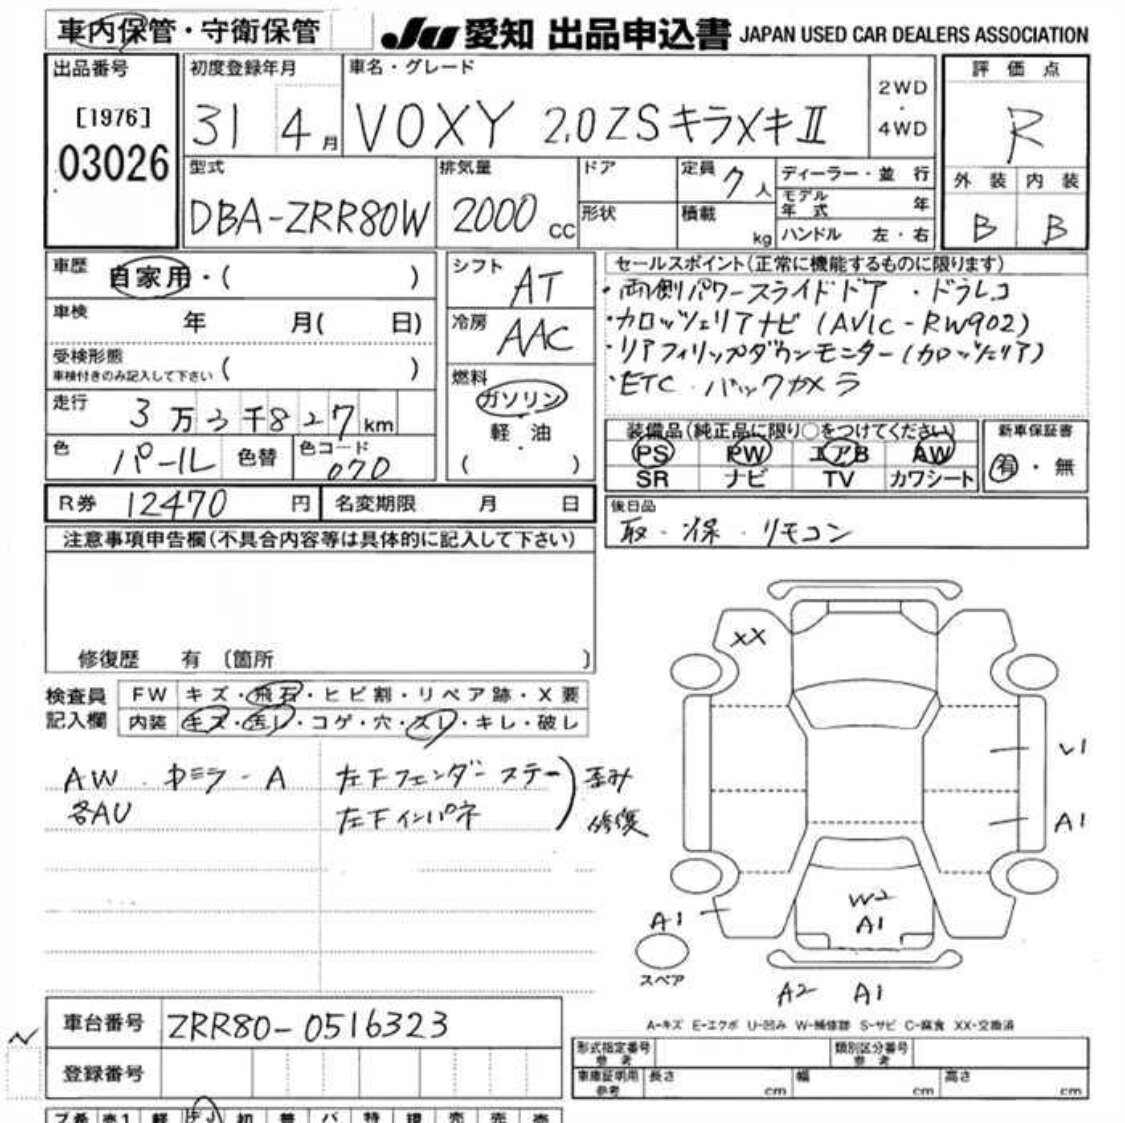 車内保管・守衛保管
JU 愛知 出品申込書 JAPAN USED CAR DEALERS ASSOCIATION
出品番号
[1976]
03026
初度登録年月
31 4月
車名・グレード
VOXY 2.0ZSキラメキⅡ
2WD
・
4WD
評価点
R
外装 内装
B B
型式
DBA-ZRR80W
排気量
2000cc
ドア
形状
定員 7人
積載 kg
ディーラー・並行
モデル年式 年
ハンドル 左・右
車歴 自家用・( )
車検 年 月( 日)
受検形態
車検付きのみ記入して下さい ( )
走行 3万3千827km
色 パール 色替 色コード 070
シフト AT
冷房 AAC
燃料
ガソリン
・
軽油
・
( )
セールスポイント(正常に機能するものに限ります)
・両側パワースライドドア ・ドラレコ
・カロッツェリアナビ(AVIC-RW902)
・リアフィリップダウンモニター(カロッツェリア)
・ETC・バックカメラ
装備品(純正品に限り○をつけてください)
PS PW エアB AW
SR ナビ TV カワシート
新車保証書
有・無
R券 12470円 名変期限 月 日
後日品
取・保・リモコン
注意事項申告欄(不具合内容等は具体的に記入して下さい)
修復歴 有〔箇所 〕
検査員記入欄
FW キズ・飛石・ヒビ割・リペア跡・X要
内装 キズ・汚レ・コゲ・穴・スレ・キレ・破レ
AW・ A
各AU
左下フェンダーステー
左下インパネ
歪み
修復
XX
V1
A1
W2
A1
A1
スペア
A2 A1
A-キズ E-エクボ U-凹み W-補修跡 S-サビ C-腐食 XX-交換済
車台番号 ZRR80-0516323
登録番号
形式指定番号参考 類別区分番号参考
車庫証明用参考 長さ cm 幅 cm 高さ cm